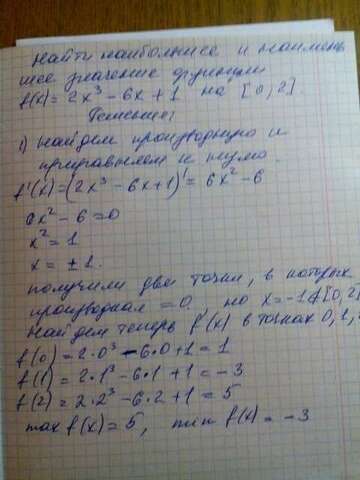 Найти наибольшее и наимень
шее значение функции
f(x) = 2x³ - 6x + 1 на [0, 2].
Решение:
1) Найдем производную и
приравняем к нулю.
f'(x) = (2x³ - 6x + 1)' = 6x² - 6
6x² - 6 = 0
x² = 1
x = ± 1.
получили две точки, в которых
производная = 0. но x = -1 ∉ [0, 2]
Найдем теперь f(x) в точках 0, 1,
f(0) = 2·0³ - 6·0 + 1 = 1
f(1) = 2·1³ - 6·1 + 1 = -3
f(2) = 2·2³ - 6·2 + 1 = 5
max f(x) = 5, min f(x) = -3